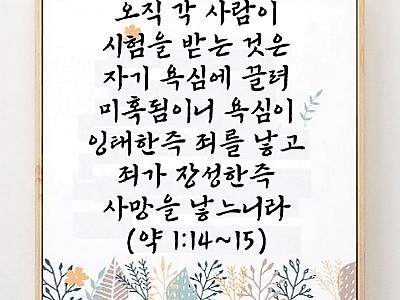 오직 각 사람이
시험을 받는 것은
자기 욕심에 끌려
미혹됨이니 욕심이
잉태한즉 죄를 낳고
죄가 장성한즉
사망을 낳느니라
(약 1:14~15)